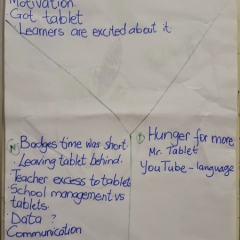 Motivation
Got tablet
Learners are excited about it
Badges time was short.
Leaving tablet behind.
Teacher excess to tablet
School management vs
tablets.
Data ?
Communication
Hunger for more
Mr. Tablet
YouTube - language